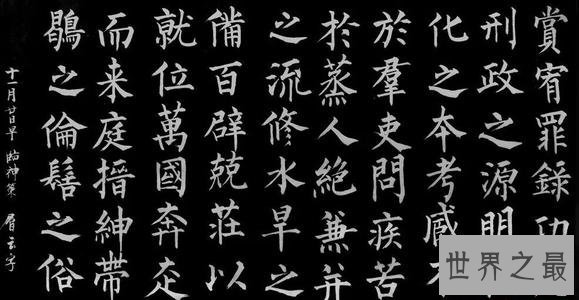 賞宥罪錄功
刑政之源明
化之本考臧
於羣吏問疾苦
於蒸人絕兼并
之流修水旱之
備百辟兢莊以
就位萬國奔走
而来庭搢紳帶
鶡之倫之俗
十一月廿日早 臨神策
世界之最